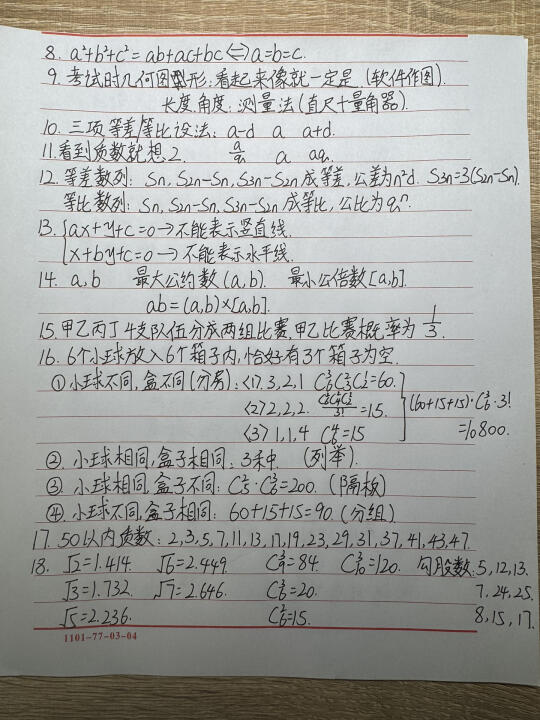 8. a²+b²+c²=ab+ac+bc⟺a=b=c.
9. 考试时几何图形:看起来像就一定是(软件作图).
长度,角度:测量法(直尺十量角器).
10. 三项等差/等比设法: a-d a a+d.
11.看到质数就想2. a/q a aq.
12. 等差数列: Sn, S2n-Sn, S3n-S2n 成等差,公差为n²d. S3n=3(S2n-Sn).
等比数列: Sn, S2n-Sn, S3n-S2n 成等比,公比为qⁿ.
13. {ax+y+c=0→不能表示竖直线.
x+by+c=0→不能表示水平线.
14. a,b 最大公约数(a,b). 最小公倍数[a,b].
ab=(a,b)×[a,b].
15.甲乙丙丁4支队伍分成两组比赛,甲乙比赛概率为 1/3.
16. 6个小球放入6个箱子内,恰好有3个箱子为空.
①小球不同,盒不同(分房):<1>.3,2,1 C₆³C₃²C₁¹=60.
<2>2,2,2. C₆²C₄²C₂²/3! =15.
<3>1,1,4 C₆⁴=15
(60+15+15)·C₆³·3!
=10800.
②. 小球相同,盒子相同: 3种. (列举).
③. 小球相同,盒子不同: C₅²·C₆³=200. (隔板)
④. 小球不同,盒子相同: 60+15+15=90.(分组).
17. 50以内质数: 2,3,5,7,11,13,17,19,23,29,31,37,41,43,47.
18. √2=1.414. √6=2.449. C₉³=84 C₁₀³=120. 勾股数:5,12,13.
√3=1.732. √7=2.646. C₆³=20. 7,24,25.
√5=2.236. C₆²=15. 8,15,17.
1101-77-03-04